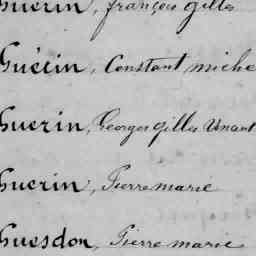 Guérin, françois gilles
Guérin, Constant miche
Guerin, Georges gilles Vinant
Guerin, Pierre marie
Guesdon, Pierre marie